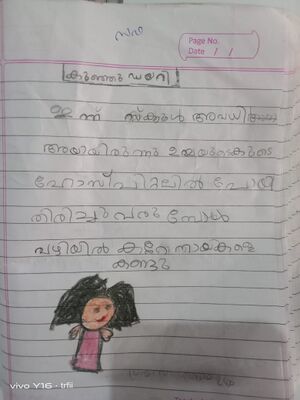 സഫ
Page No.
Date / /
കുഞ്ഞു ഡയറി
ഇന്ന് സ്കൂൾ അവധി
ആയിരുന്നു ഉമ്മയുടെകൂടെ
ഹോസ്പിറ്റലിൽ പോയി
തിരിച്ചു വരു മ്പോൾ
വഴിയിൽ കുറേ നായകളെ
കണ്ടു
vivo Y16 · trfii